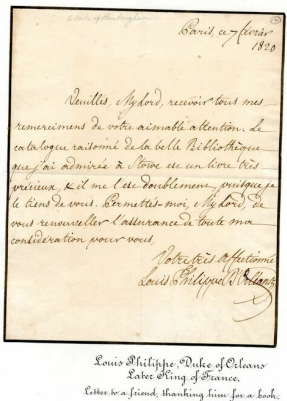 Paris, ce 7 février
1820
Veuilles, Mylord, recevoir tous mes
remercimens de votre aimable attention. Le
catalogue raisonné de la belle Bibliothèque
que j'ai admirée à Stowe est un livre très
précieux, & il me l'est doublement, puisque je
le tiens de vous. Permettés-moi, Mylord, de
vous renouveller l'assurance de toute ma
considération pour vous,
Votre très affectionné
Louis Philippe D'Orléans
Louis Philippe, Duke of Orleans
Later King of France.
Letter to a friend, thanking him for a book.